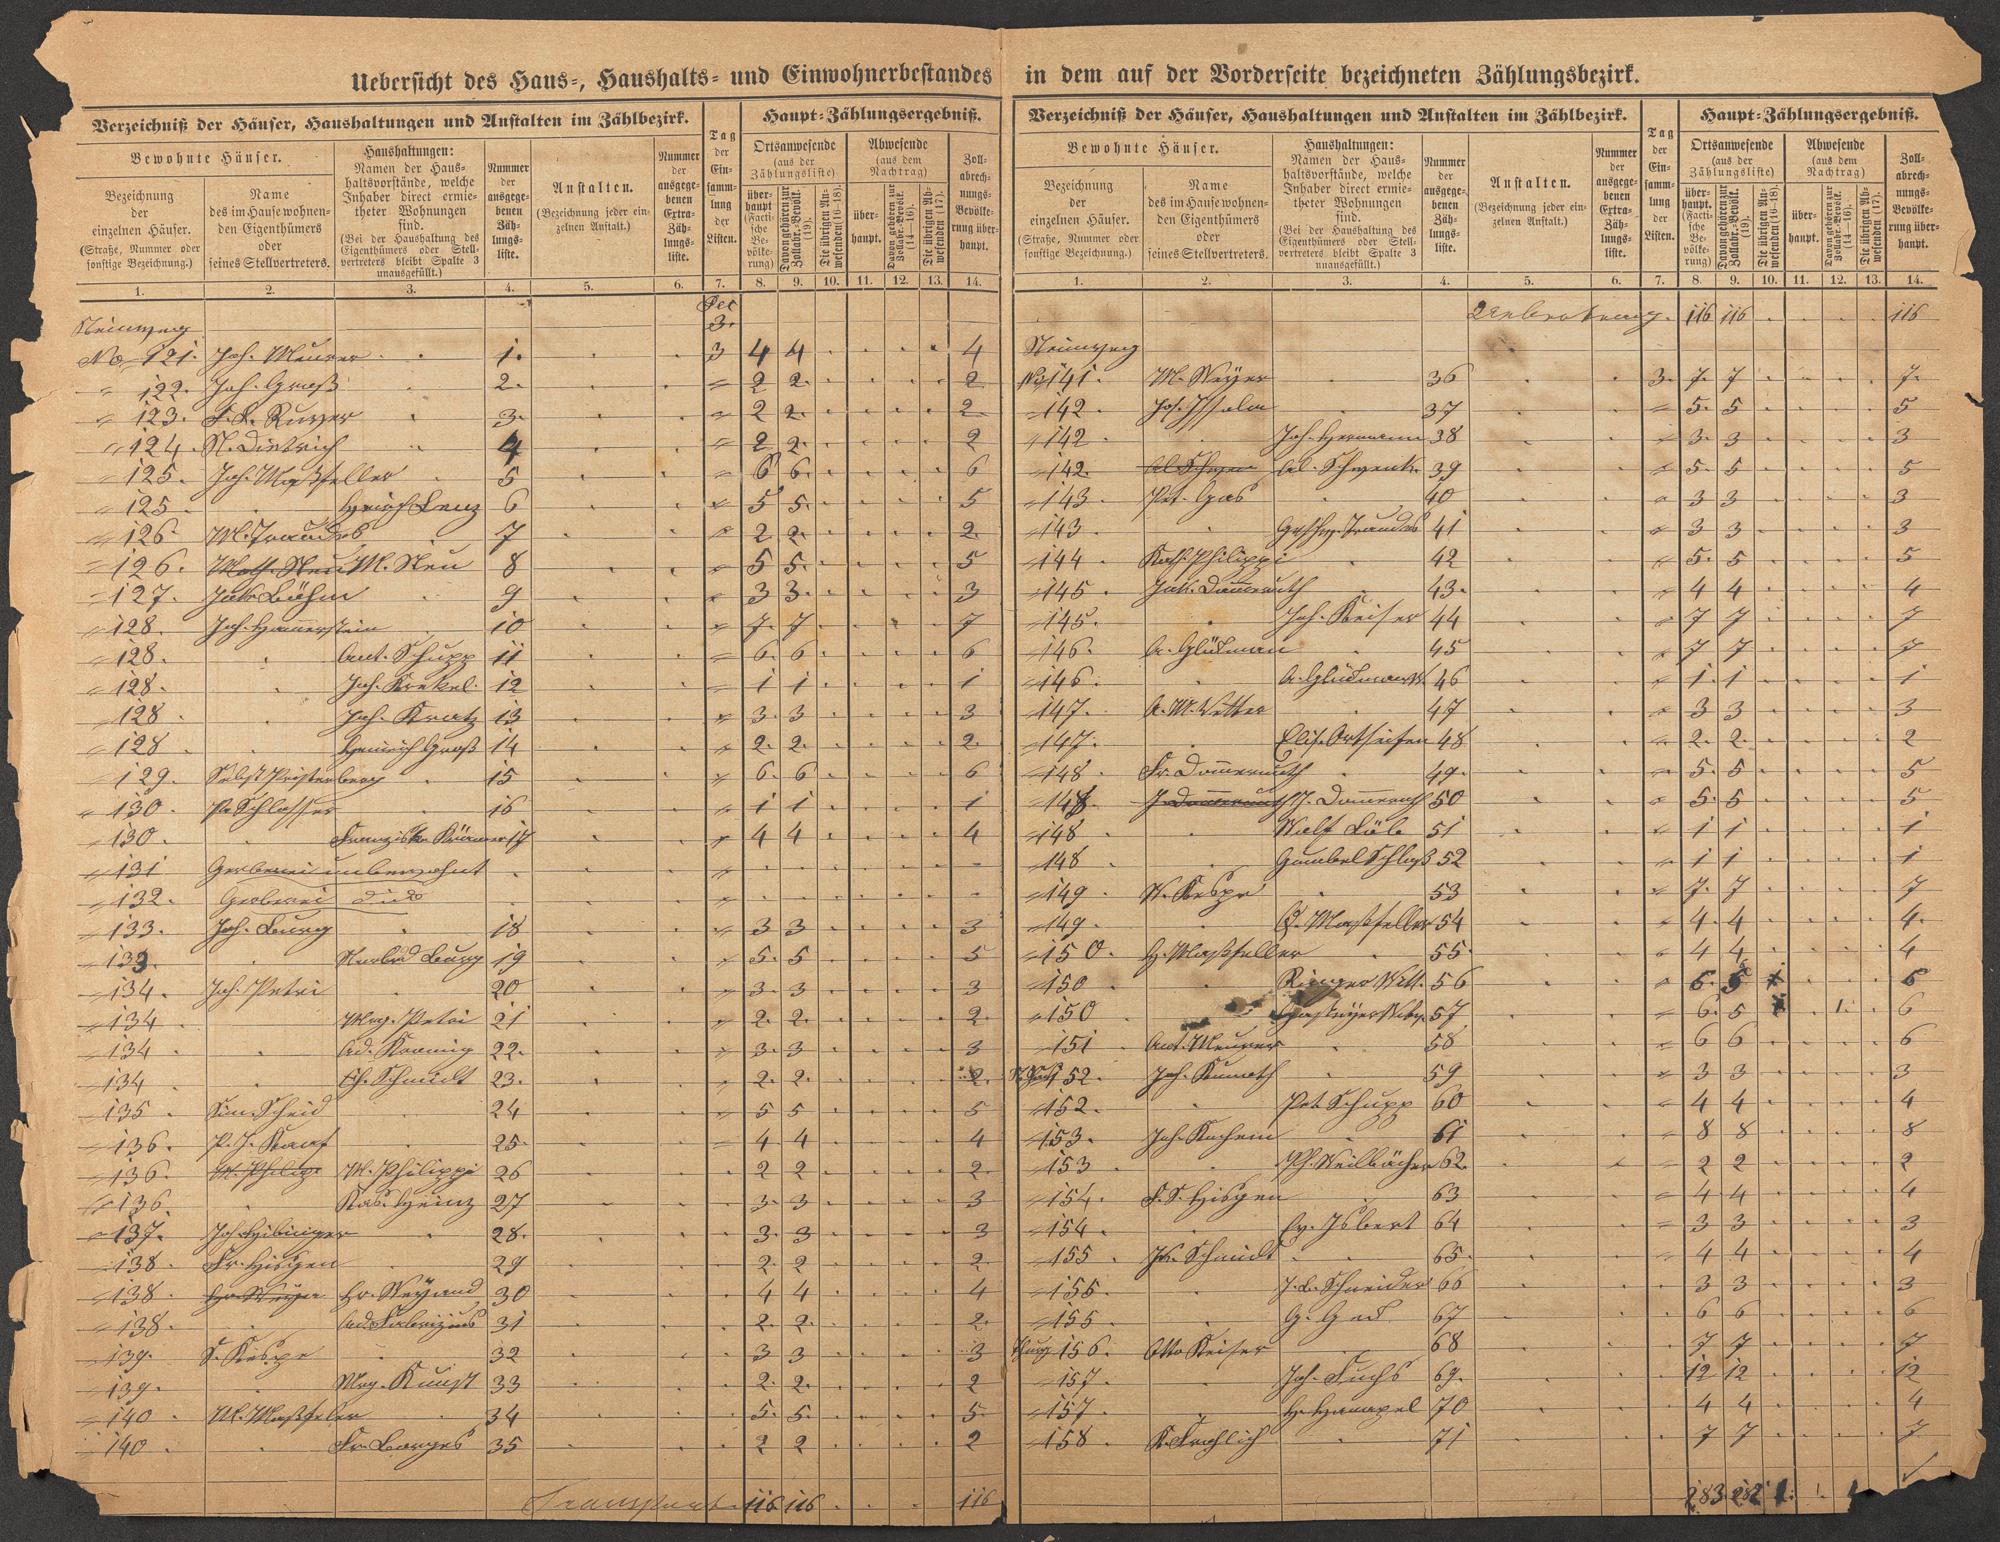 Uebersicht des Haus-, Haushalts- und Einwohnerbestandes in dem auf der Vorderseite bezeichneten Zählungsbezirk.
Verzeichniß der Häuser, Haushaltungen und Anstalten im Zählbezirk.
Bewohnte Häuser.
Bezeichnung der einzelnen Häuser.
(Straße, Nummer oder sonstige Bezeichnung.)
Name des im Hause wohnenden Eigenthümers oder seines Stellvertreters.
Haushaltungen:
Namen der Haushaltsvorstände, welche Inhaber direct ermietheter Wohnungen sind.
(Bei der Haushaltung des Eigenthümers oder Stellvertreters bleibt Spalte 3 unausgefüllt.)
Nummer der ausgegebenen Zählungsliste.
Anstalten.
(Bezeichnung jeder einzelnen Anstalt.)
Nummer der ausgegebenen Extra-Zählungsliste.
Tag der Einsammlung der Listen.
Haupt-Zählungsergebniß.
Ortsanwesende (aus der Zählungsliste)
überhaupt (Factische Bevölkerung)
Davon gehören zur Zollabr.-Bevölk. (19).
Die übrigen Anwesenden (16-18).
Abwesende (aus dem Nachtrag)
überhaupt.
Davon gehören zur Zollabr.-Bevölk. (14-16).
Die übrigen Abwesenden (17).
Zollabrechnungs-Bevölkerung überhaupt.
1. 2. 3. 4. 5. 6. 7. 8. 9. 10. 11. 12. 13. 14.
Steinweg Dec 3.
No 121. Joh. Meurer 1. 3 4 4 4
" 122. Joh. Groß 2. " 2 2. 2
" 123. 3. " 2 2. 2
" 124. N. Dietrich 4 " 2 2. 2
" 125. Joh. Maßfeller 5 " 6 6. 6
" 125. Lenz 6 " 5 5. 5
" 126. 7 " 2 2. 2.
" 126. M. Neu 8 " 5 5. 5
" 127. Jak. Böhm 9 " 3 3. 3
" 128. Joh. Hammerstein 10 " 7. 7 7
" 128. Ant. Schupp 11 " 6. 6 6
" 128. Joh. Krekel. 12 " 1 1 1
" 128 Joh. Kratz 13 " 3. 3 3
" 128 Heinrich Groß 14 " 2. 2. 2.
" 129. 15 " 6. 6 6
" 130. P. Schlosser 16 " 1 1 1
" 130. Franziska Krämer 17 " 4 4 4
" 131 Gerberei unbewohnt "
" 132. Gerberei dito "
" 133. Joh. Burg 18 " 3 3 3
" 133. Burg 19 " 5. 5 5
" 134. Joh. Petri 20 " 3. 3 3
" 134. Petri 21 " 2. 2. 2.
" 134 Ad. 22. " 3. 3. 3
" 134 Schmidt 23. " 2. 2. 2.
" 135 Sim. Scheid 24 " 5 5 5
" 136. P. J. 25. " 4. 4 4
" 136. M. Philippi 26 2 2 2.
" 136. Heinz 27 3. 3 3
" 137. Joh. 28. 3. 3 3
" 138. Fr. Hisgen 29 2. 2 2.
" 138. Hr. Weyand 30 4 4 4
" 138. Ad. Fabrizius 31 2. 2. 2.
" 139. 32 3 3 3
" 139. Kunst 33 2. 2. 2
" 140 M. Maßfeler 34 5. 5. 5.
" 140 Fr. 35 2 2 2
Transport 116 116 116
Verzeichniß der Häuser, Haushaltungen und Anstalten im Zählbezirk.
Bewohnte Häuser.
Bezeichnung der einzelnen Häuser.
(Straße, Nummer oder sonstige Bezeichnung.)
Name des im Hause wohnenden Eigenthümers oder seines Stellvertreters.
Haushaltungen:
Namen der Haushaltsvorstände, welche Inhaber direct ermietheter Wohnungen sind.
(Bei der Haushaltung des Eigenthümers oder Stellvertreters bleibt Spalte 3 unausgefüllt.)
Nummer der ausgegebenen Zählungsliste.
Anstalten.
(Bezeichnung jeder einzelnen Anstalt.)
Nummer der ausgegebenen Extra-Zählungsliste.
Tag der Einsammlung der Listen.
Haupt-Zählungsergebniß.
Ortsanwesende (aus der Zählungsliste)
überhaupt. (Factische Bevölkerung)
Davon gehören zur Zollabr.-Bevölk. (19).
Die übrigen Anwesenden (16-18).
Abwesende (aus dem Nachtrag)
überhaupt.
Davon gehören zur Zollabr.-Bevölk. (14-16).
Die übrigen Abwesenden (17).
Zollabrechnungs-Bevölkerung überhaupt.
1. 2. 3. 4. 5. 6. 7. 8. 9. 10. 11. 12. 13. 14.
Uebertrag. 116 116 116
Steinweg
No 141. M. Meyer 36 3. 7. 7 7.
" 142. Jos. 37 " 5. 5 5
" 142 Joh. Hermann 38 " 3. 3 3
" 142. Ad. Schwenk. 39 " 5. 5 5
" 143. Pet. Gas 40 " 3 3 3
" 143. 41 " 3 3 3
" 144 Kath. Philippi 42 " 5. 5 5
" 145 Jak. Dommermuth 43. " 4 4 4
" 145. Joh. Keiser 44 " 7 7 7
" 146. A. Glükman 45 " 7 7 7
" 146. 46 " 1. 1 1
" 147. A. M. Vetter 47 " 3 3 3
" 147. Elis. Ortseifen 48 " 2. 2. 2
" 148. Fr. Dommermuth 49. " 5. 5 5
" 148. J. Dommermuth 50 " 5. 5 5
" 148 Wolf Löb 51 " 1 1 1
148 Gumbel Schloß 52 " 1 1 1
" 149 53 " 7. 7 7
" 149. Maßfeller 54 " 4. 4 4.
" 150. H. Maßfeller 55. " 4 4 4
" 150 56 "
" 150 57 " 6. 5 1. 6
" 151 Ant. Meurer 58 " 6 6 6
152. Joh. 59 " 3 3 3
" 152. Pet. Schupp 60 " 4 4 4
" 153. Joh. 61 " 8 8 8
" 153 Ph. Weilbächer 62. " 2 2 2
" 154. F. S. Hisgen 63 " 4 4 4
" 154 Isbert 64 " 3 3 3
" 155 Schmidt 65. 4 4 4
" 155. Schneider 66 3 3 3
" 155. 67 6 6 6
156. Otto Keiser 68 7 7 7
" 157. Joh. Fuchs 69. 12 12 12
" 157 70 4 4 4
" 158 71 7 7 7
283 282 1